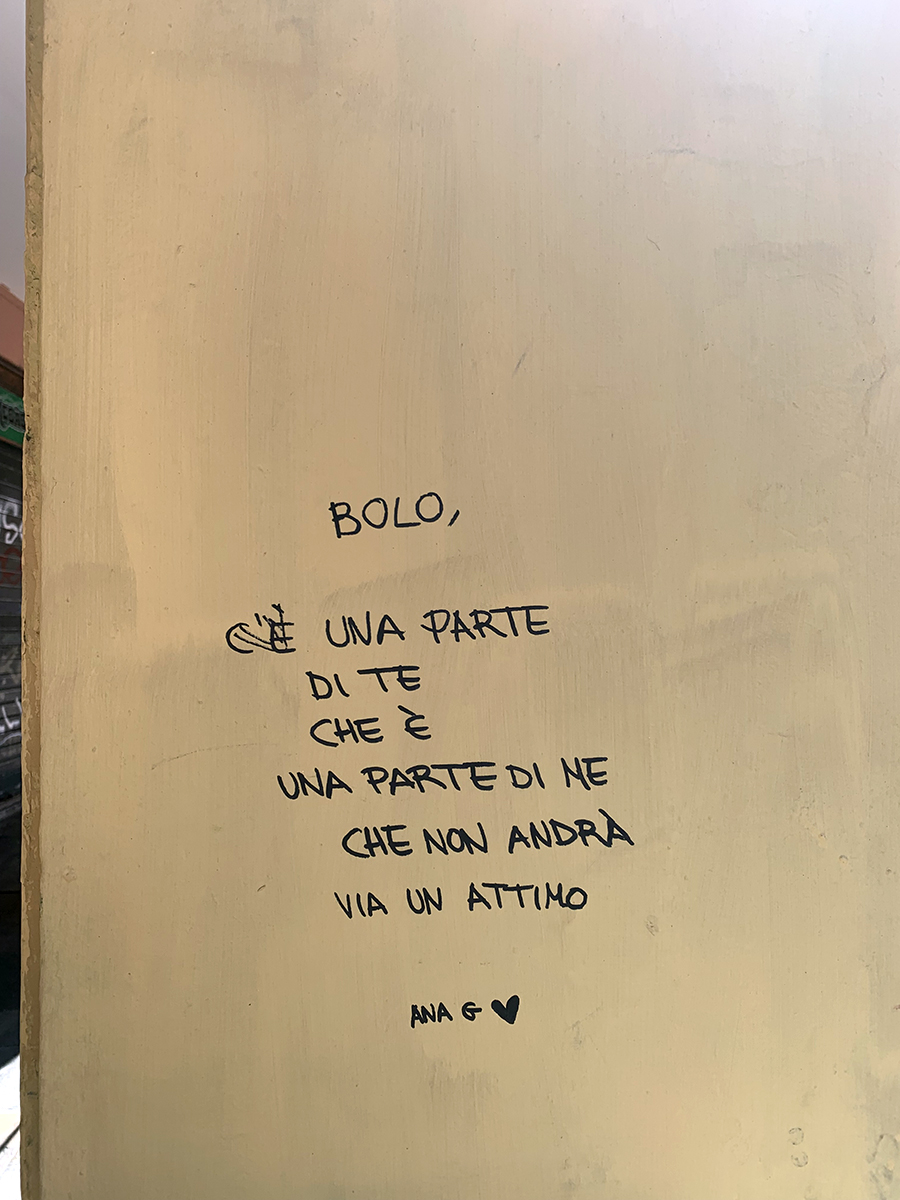 BOLO,
C'È UNA PARTE
DI TE
CHE È
UNA PARTE DI ME
CHE NON ANDRÀ
VIA UN ATTIMO
ANA G ♥